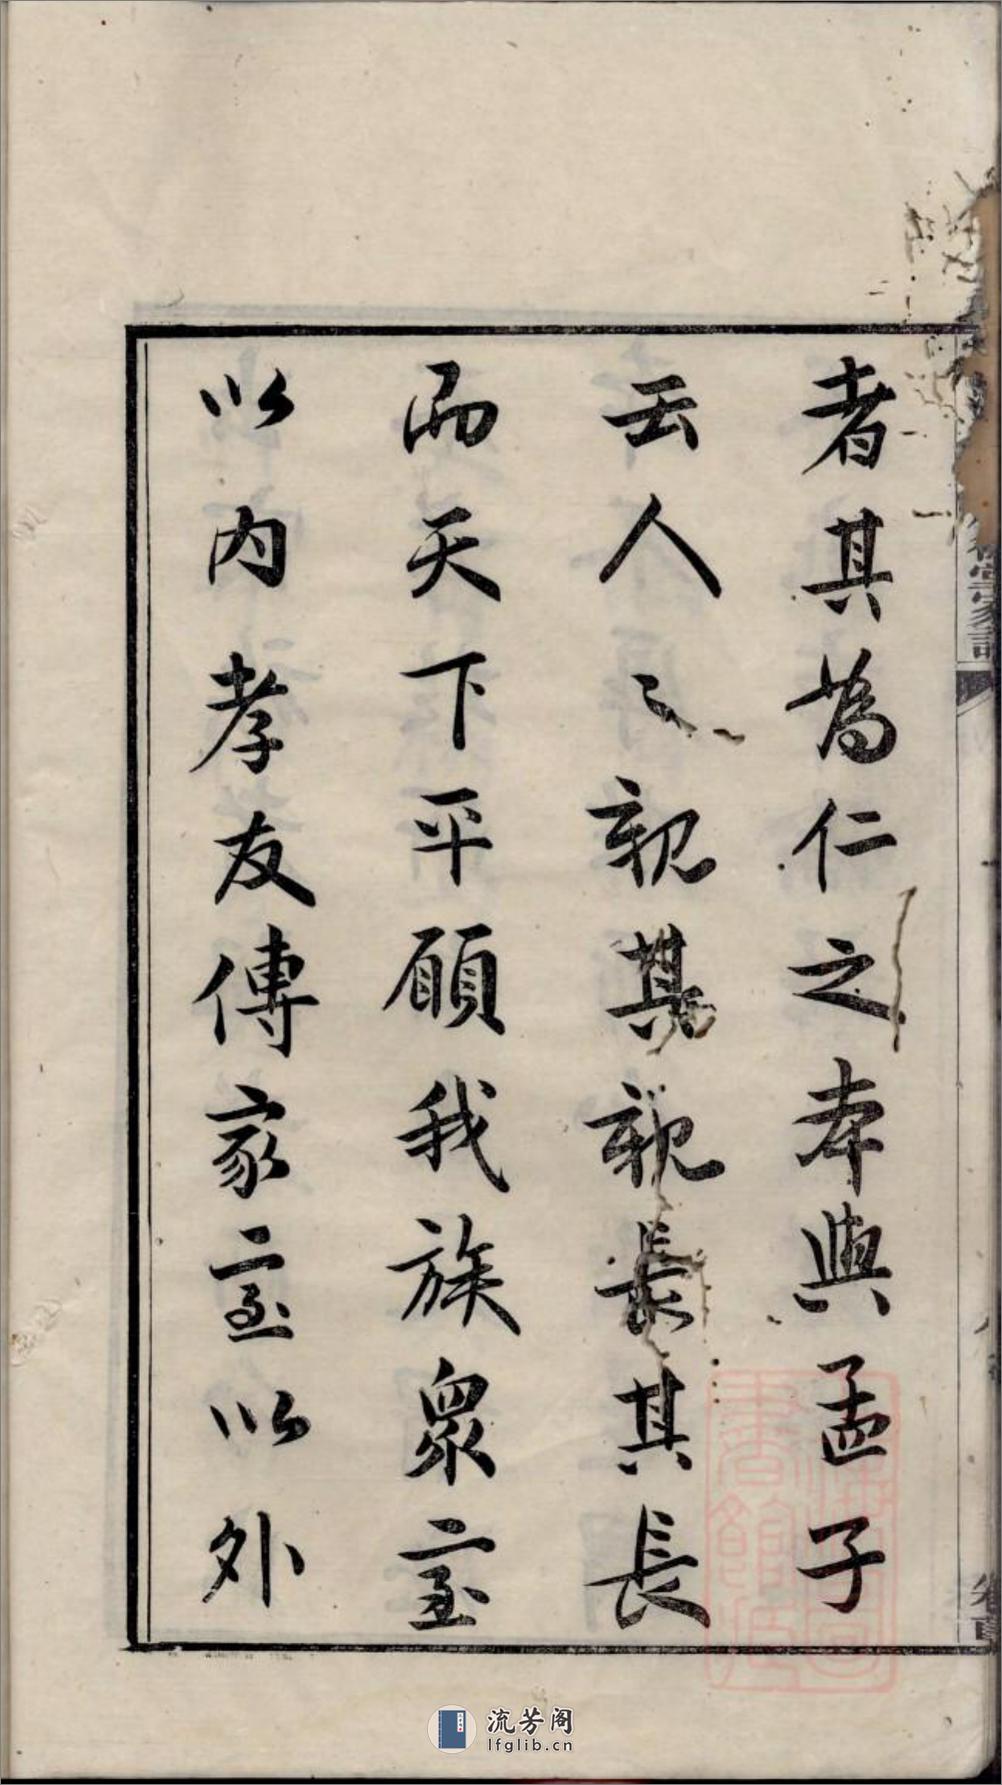 者其為仁之本與孟子
云人〻親其親長其長
而天下平願我族衆室
以内孝友傳家室以外
堂家譜
卷首
流芳阁
lfglib.cn